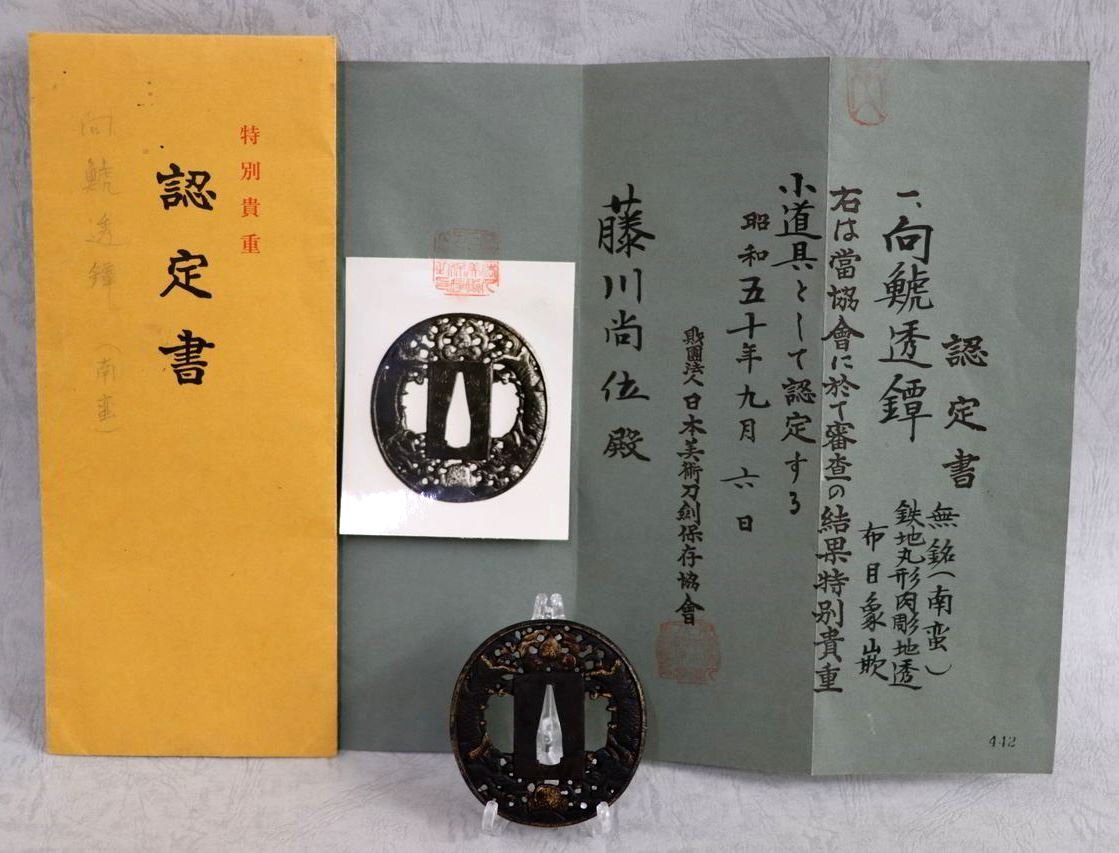 認定書
一、向鯱透鐔
無銘(南蛮)
鉄地丸形肉彫地透
布目象嵌
右は當協會に於て審査の結果特別貴重
小道具として認定する
昭和五十年九月六日
財團法人日本美術刀劍保存協會
藤川尚位殿
442
特別貴重
認定書
向鯱透鐔(南蛮)